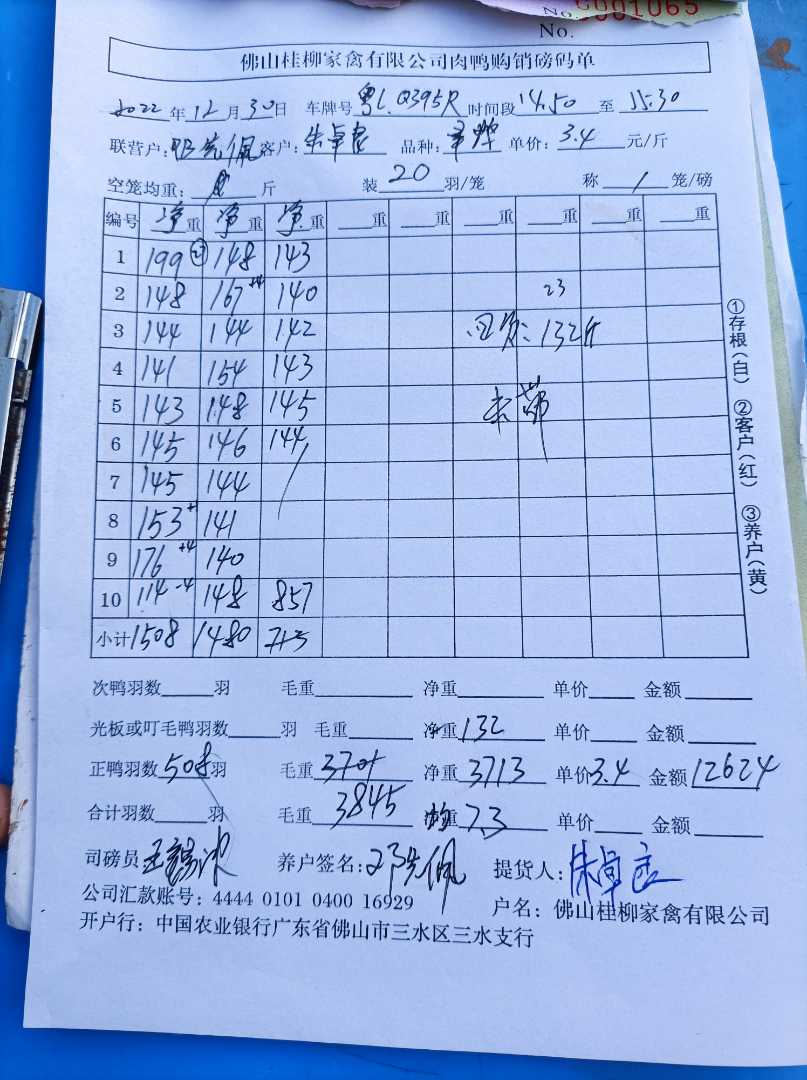 No. 0001065
No.
佛山桂柳家禽有限公司肉鸭购销磅码单
2022年12月30日 车牌号 粤L.Q395R 时间段 14.50 至 15.30
联营户: 邓先佩 客户: 朱卓良 品种: 单价: 3.4 元/斤
空笼均重: 斤 装 20 羽/笼 称 / 笼/磅
编号 净重 净重 净重 重 重 重 重 重
1 199 148 143
2 148 167+4 140 23
3 144 144 142 132斤
4 141 154 143
5 143 148 145
6 145 146 144
7 145 144
8 153+1 141
9 176+4 140
10 114-4 148 857
小计 1508 1480
次鸭羽数 羽 毛重 净重 单价 金额
光板或叮毛鸭羽数 羽 毛重 净重 132 单价 金额
正鸭羽数 508 羽 毛重 净重 3713 单价 3.4 金额 12624
合计羽数 羽 毛重 3845 均重 7.3 单价 金额
司磅员 养户签名: 邓先佩 提货人: 朱卓良
公司汇款账号: 4444 0101 0400 16929 户名: 佛山桂柳家禽有限公司
开户行: 中国农业银行广东省佛山市三水区三水支行
①存根(白) ②客户(红) ③养户(黄)